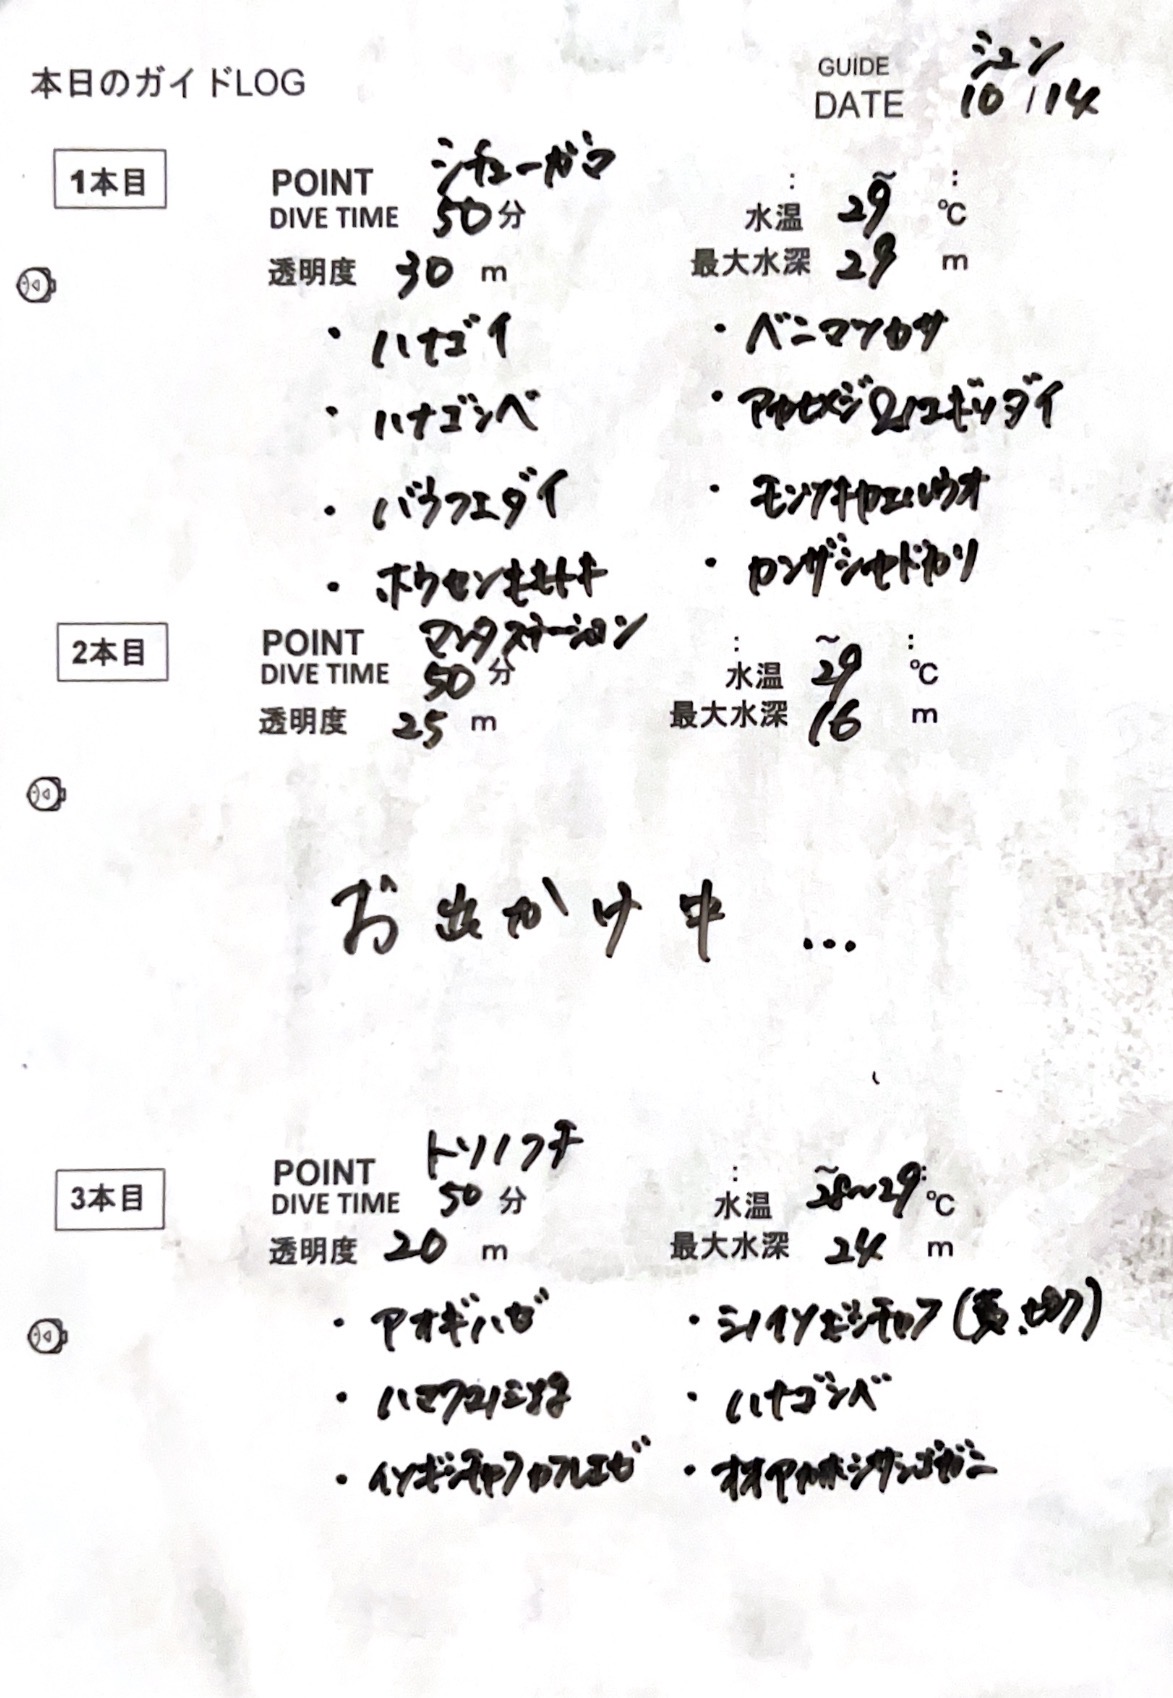 本日のガイドLOG
GUIDE ジュン
DATE 10/14
1本目
POINT シチューガマ
DIVE TIME 50分
水温 29 ℃
透明度 30 m
最大水深 29 m
・ハナゴイ
・ベニマツカサ
・ハナゴンベ
・バラフエダイ
・モンツキカエルウオ
・ホウセキキントキ
・カンザシヤドカリ
2本目
POINT マンタステーション
DIVE TIME 50分
水温 29 ℃
透明度 25 m
最大水深 16 m
お出かけ中...
3本目
POINT トリノフチ
DIVE TIME 50分
水温 28~29 ℃
透明度 20 m
最大水深 24 m
・アオギハゼ
・ハマクマノミ
・ハナゴンベ
・イソギンチャクカクレエビ
・オオアカホシサンゴガニ